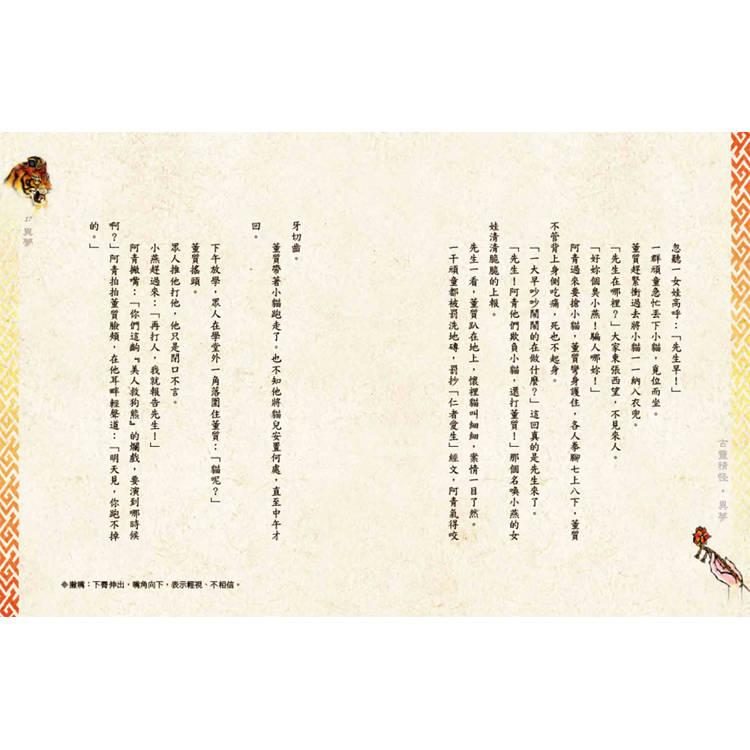 忽聽一女娃高呼：「先生早！」
一群頑童急忙丟下小貓，覓位而坐。
董質趕緊衝過去將小貓一一納入衣兜。
「先生在哪裡？」大家東張西望，不見來人。
「好妳個臭小燕！騙人哪妳！」
阿青過來要搶小貓，董質彎身護住，各人拳腳七上八下，董質
不管背上身側吃痛，死也不起身。
「一大早吵吵鬧鬧的在做什麼？」這回真的是先生來了。
「先生！阿青他們欺負小貓，還打董質！」那個名喚小燕的女
娃清清脆脆的上報。
先生一看，董質趴在地上，懷裡貓叫細細，案情一目了然。
一干頑童都被罰洗地磚，罰抄「仁者愛生」經文，阿青氣得咬
牙切齒。
董質帶著小貓跑走了。也不知他將貓兒安置何處，直至中午才
回。
下午放學，眾人在學堂外一角落圍住董質：「貓呢？」
董質搖頭。
眾人推他打他，他只是閉口不言。
小燕趕過來：「再打人，我就報告先生！」
阿青撇嘴：「你們這齣『美人救狗熊』的爛戲，要演到哪時候
啊？」阿青拍拍董質臉頰，在他耳畔輕聲道：「明天見，你跑不掉
的。」
※撇嘴：下唇伸出，嘴角向下，表示輕視、不相信。
古靈精怪・異夢
17 異夢